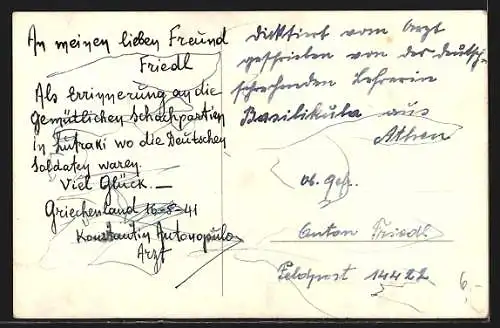 An meinen lieben Freund
Friedl
Als errinnerung an die
Gemütlichen Schachpartien
in Lutraki wo die Deutschen
Soldaten waren.
Viel Glück. —
Griechenland 16-8-41
Konstantin Antonopulo
Arzt
Dicktiert vom Arzt
geschrieben von der deutsch-
sprechenden Lehrerin
Basilikula aus
Athen
Ob. Gefr.
Anton Friedl
Feldpost 14422
6,-